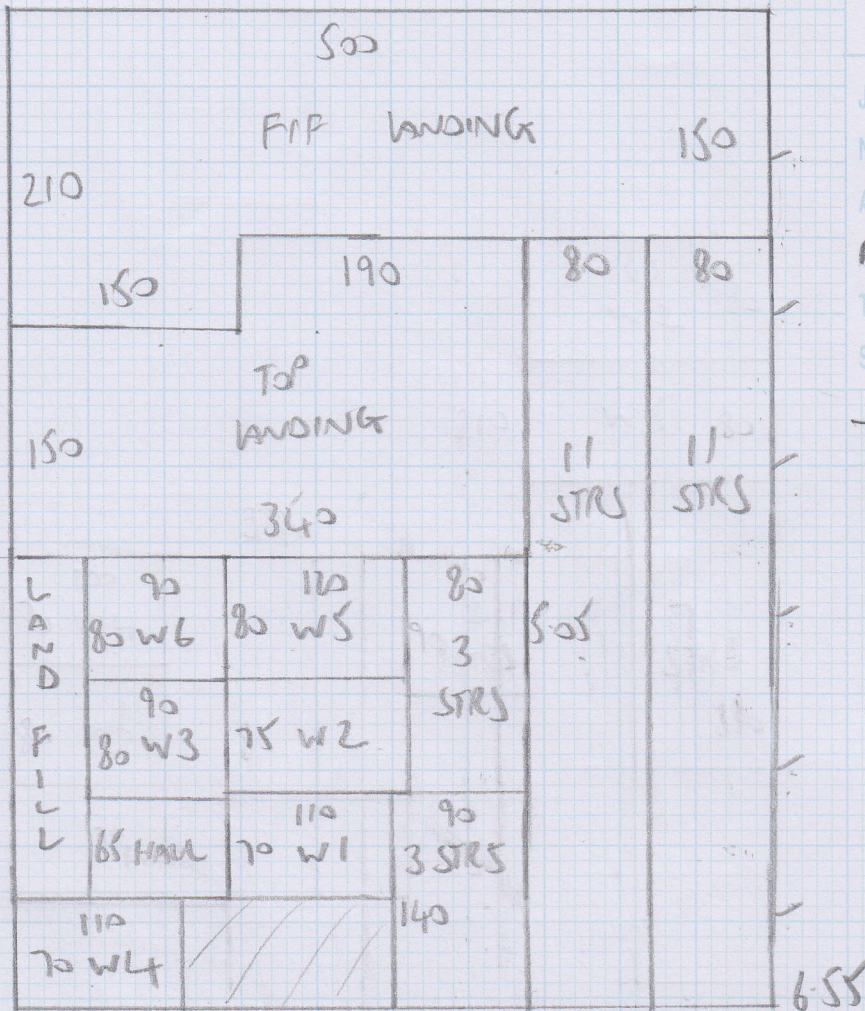 500
F/F LANDING
150
210
150
190
80
80
TOP
LANDING
150
11
STRS
11
STRS
340
LAND FILL
90
80 W6
120
80 W5
80
3
STRS
505
90
80 W3
75 W2
65 HALL
110
70 W1
90
3 STRS
140
110
70 W4
6.55